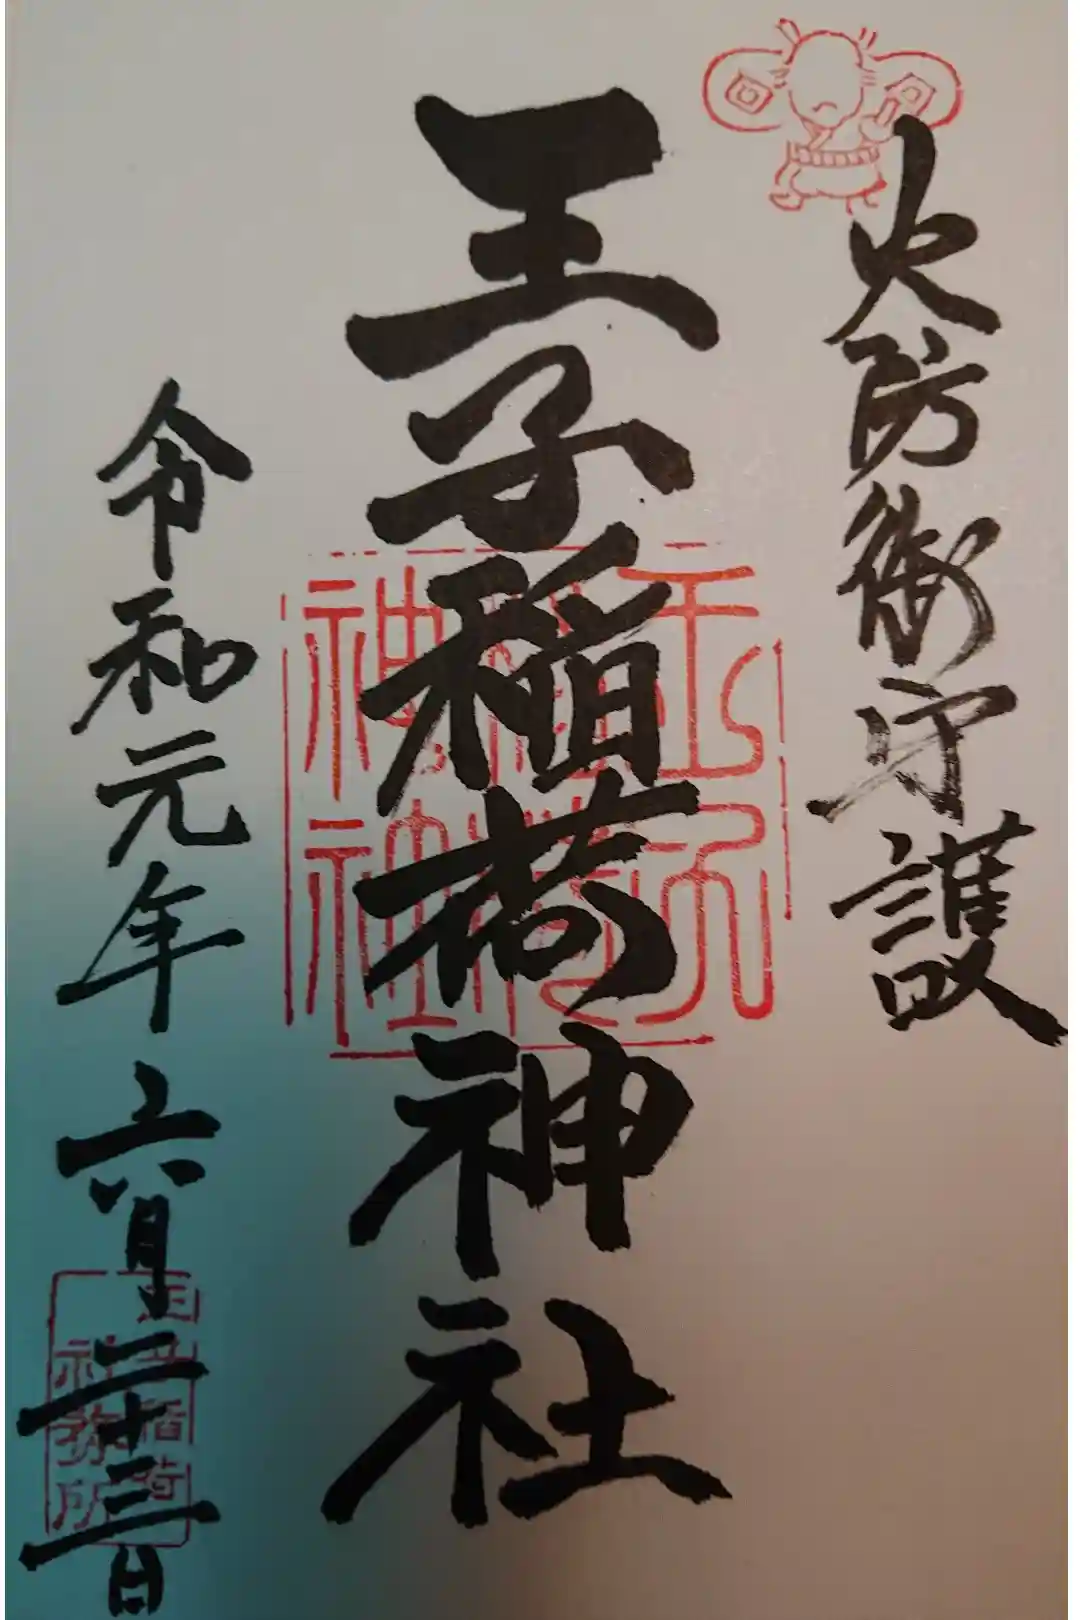 火防衛守護
王子稲荷神社
令和元年六月二十三日
王子稲荷神社
王子稲荷
社務所